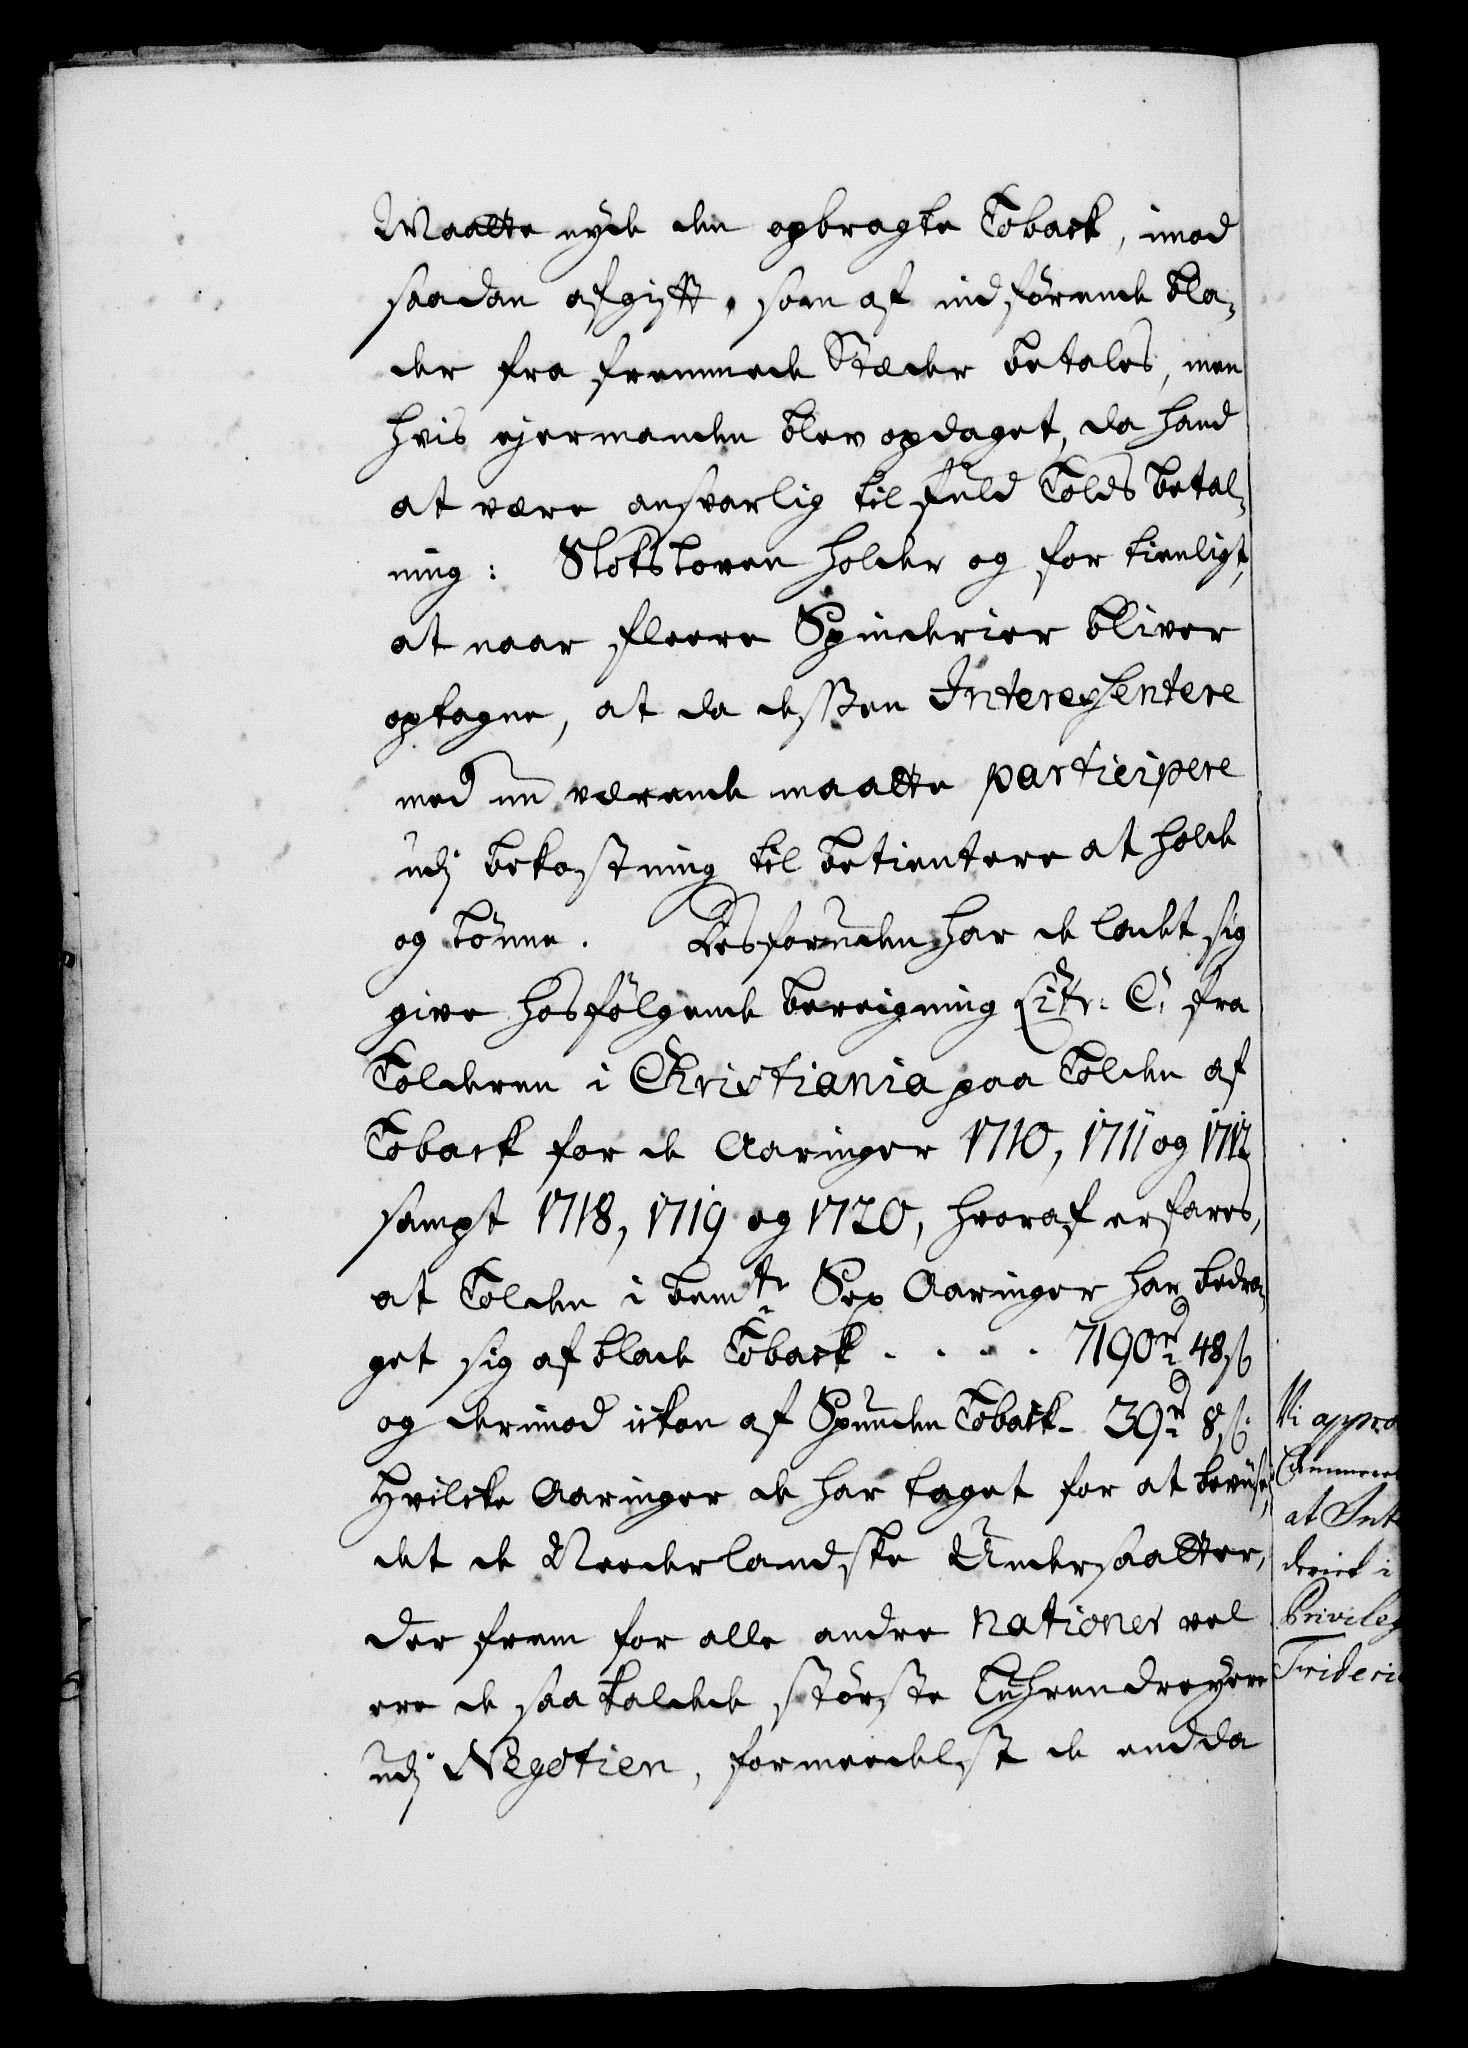 Maatte nyde den opbragte Toback, imod
saadan afgifft, som af indförende bla¬
der fra fremmede Stæder betales, men
hvis ejermanden blev opdaget, da hand
at være ansvarlig til fuld Tolds betal¬
ning: Slotsloven holder og for tienligt,
at naar fleere Spinderier bliver
optagne, at da dessen Interessentere
med nu værende maatte participere
udj bekostning til betientere at holde
og lönne. Desforuden har de ladet sig
give hosfölgende beregning Litr: C. fra
Tolderen i Christiania paa Tolden af
Toback for de Aaringer 1710, 1711 og 1712
sampt 1718, 1719 og 1720, hvoraf erfares,
at Tolden i bemte Sex Aaringer har bedra¬
get sig af blade Toback . . . . 7190 rd 48 ß
og derimod icken af Spunden Toback - 39 rd 8 ß.
Hvilcke Aaringer de har taget for at beviise,
det de Neederlandske Undersaatter,
der frem for alle andre Nationer vel
ere de saa kaldede störste
udj Negotien, formeedelst de endda
Vi appro
Commerce
at Int
deriet i
Privileg
Frideric